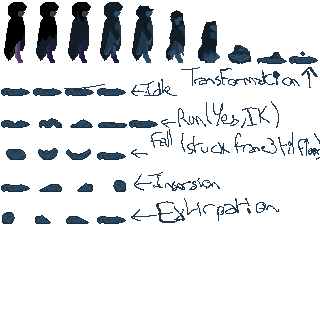 Transformation
Idle
Run(Yes, IK)
Fall (stuck frame 3 til floor)
Inversion
Extirpation